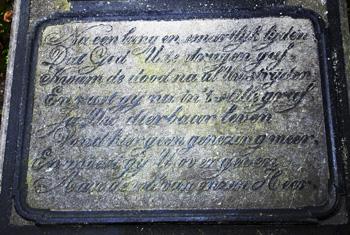 Na een lang en smartelijk lijden
Dat God U te dragen gaf
Kwam de dood na al Uw strijden
En rust gij nu in 't stille graf
Uw dierbaar leven
Vond hier geen genezing meer.
En moest gij U overgeven
Aan de wil van onzen Heer.